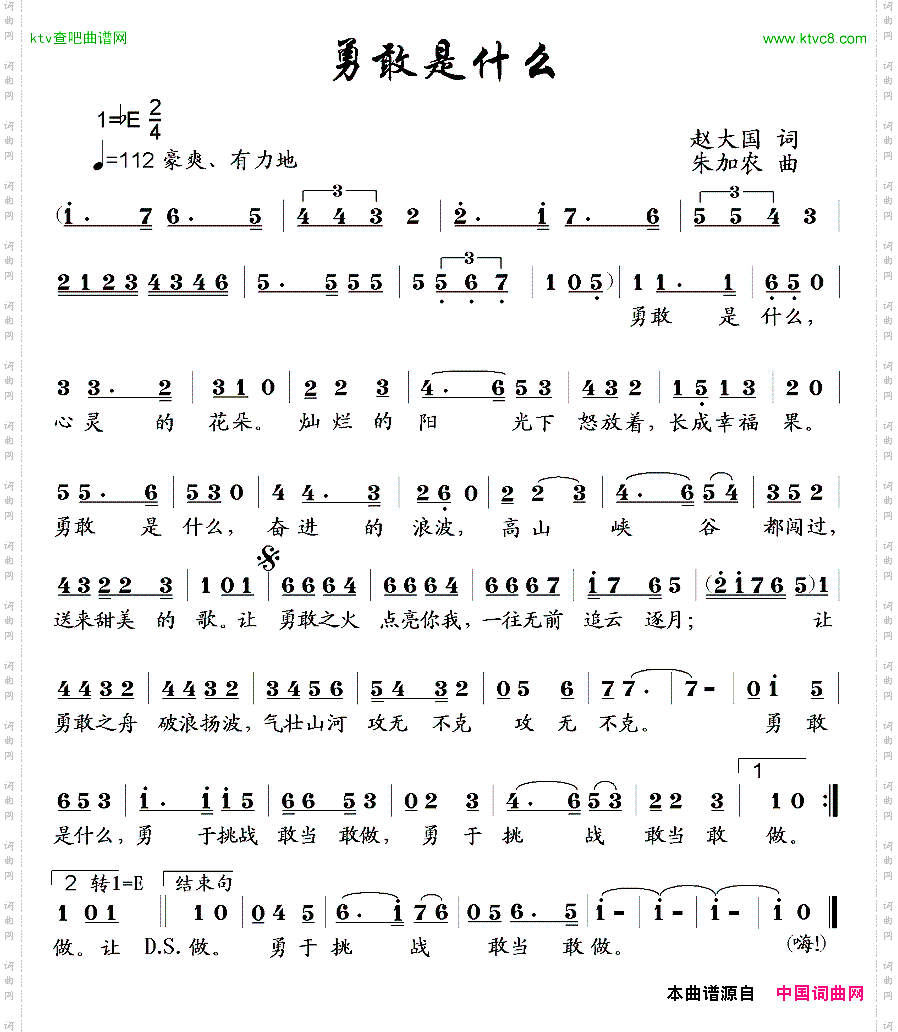 ktv查吧曲谱网
www.ktvc8.com
勇敢是什么
1=♭E 2/4
♩=112 豪爽、有力地
赵大国 词
朱加农 曲
(i· 7 6· 5 | 4 4 3 2 | 2· i 7· 6 | 5 5 4 3 |
2123 4346 | 5· 5 555 | 5 567 | 105) | 1 1· 1 | 650 |
勇敢 是 什么,
3 3· 2 | 310 | 22 3 | 4· 6 53 | 432 | 1513 | 20 |
心灵 的 花朵。 灿烂的阳 光下 怒放着,长成幸福 果。
55· 6 | 530 | 4 4· 3 | 260 | 2 2 3 | 4· 6 54 | 352 |
勇敢 是 什么, 奋进 的 浪波, 高山 峡 谷 都闯过,
4322 3 | 1 01 | 6664 | 6664 | 6667 | i7 65 | (2i765)1 |
送来甜美 的 歌。让 勇敢之火 点亮你我,一往无前 追云 逐月; 让
4432 | 4432 | 3456 | 42 32 | 05 6 | 77· | 7- | 0i 5 |
勇敢之舟 破浪扬波,气壮山河 攻无 不克 攻 无 不克。 勇 敢
1
653 | i· ii5 | 66 53 | 02 3 | 4· 653 | 22 3 | 10 :|
是什么,勇 于挑战 敢当 敢做, 勇 于 挑 战 敢当 敢 做。
2 转1=E 结束句
1 01 || 10 | 045 | 6· i76 | 056· 5 | i- | i- | i- | i 0 ||
做。让 D.S.做。 勇于 挑 战 敢当 敢做。 (嗨!)
本曲谱源自 中国词曲网
词曲网